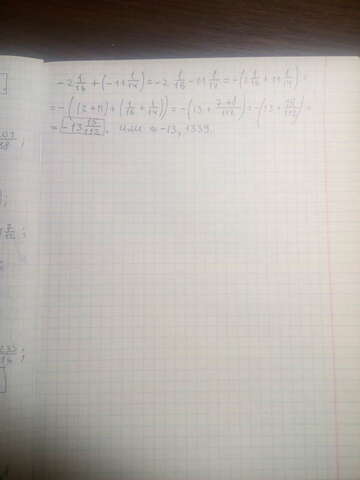 -2 1/16 + (-11 1/14) = -2 1/16 - 11 1/14 = -(2 1/16 + 11 1/14) =
= -((2+11) + (1/16 + 1/14)) = -(13 + 7+8/112) = -(13 + 15/112) =
= -13 15/112, или ≈ -13,1339.